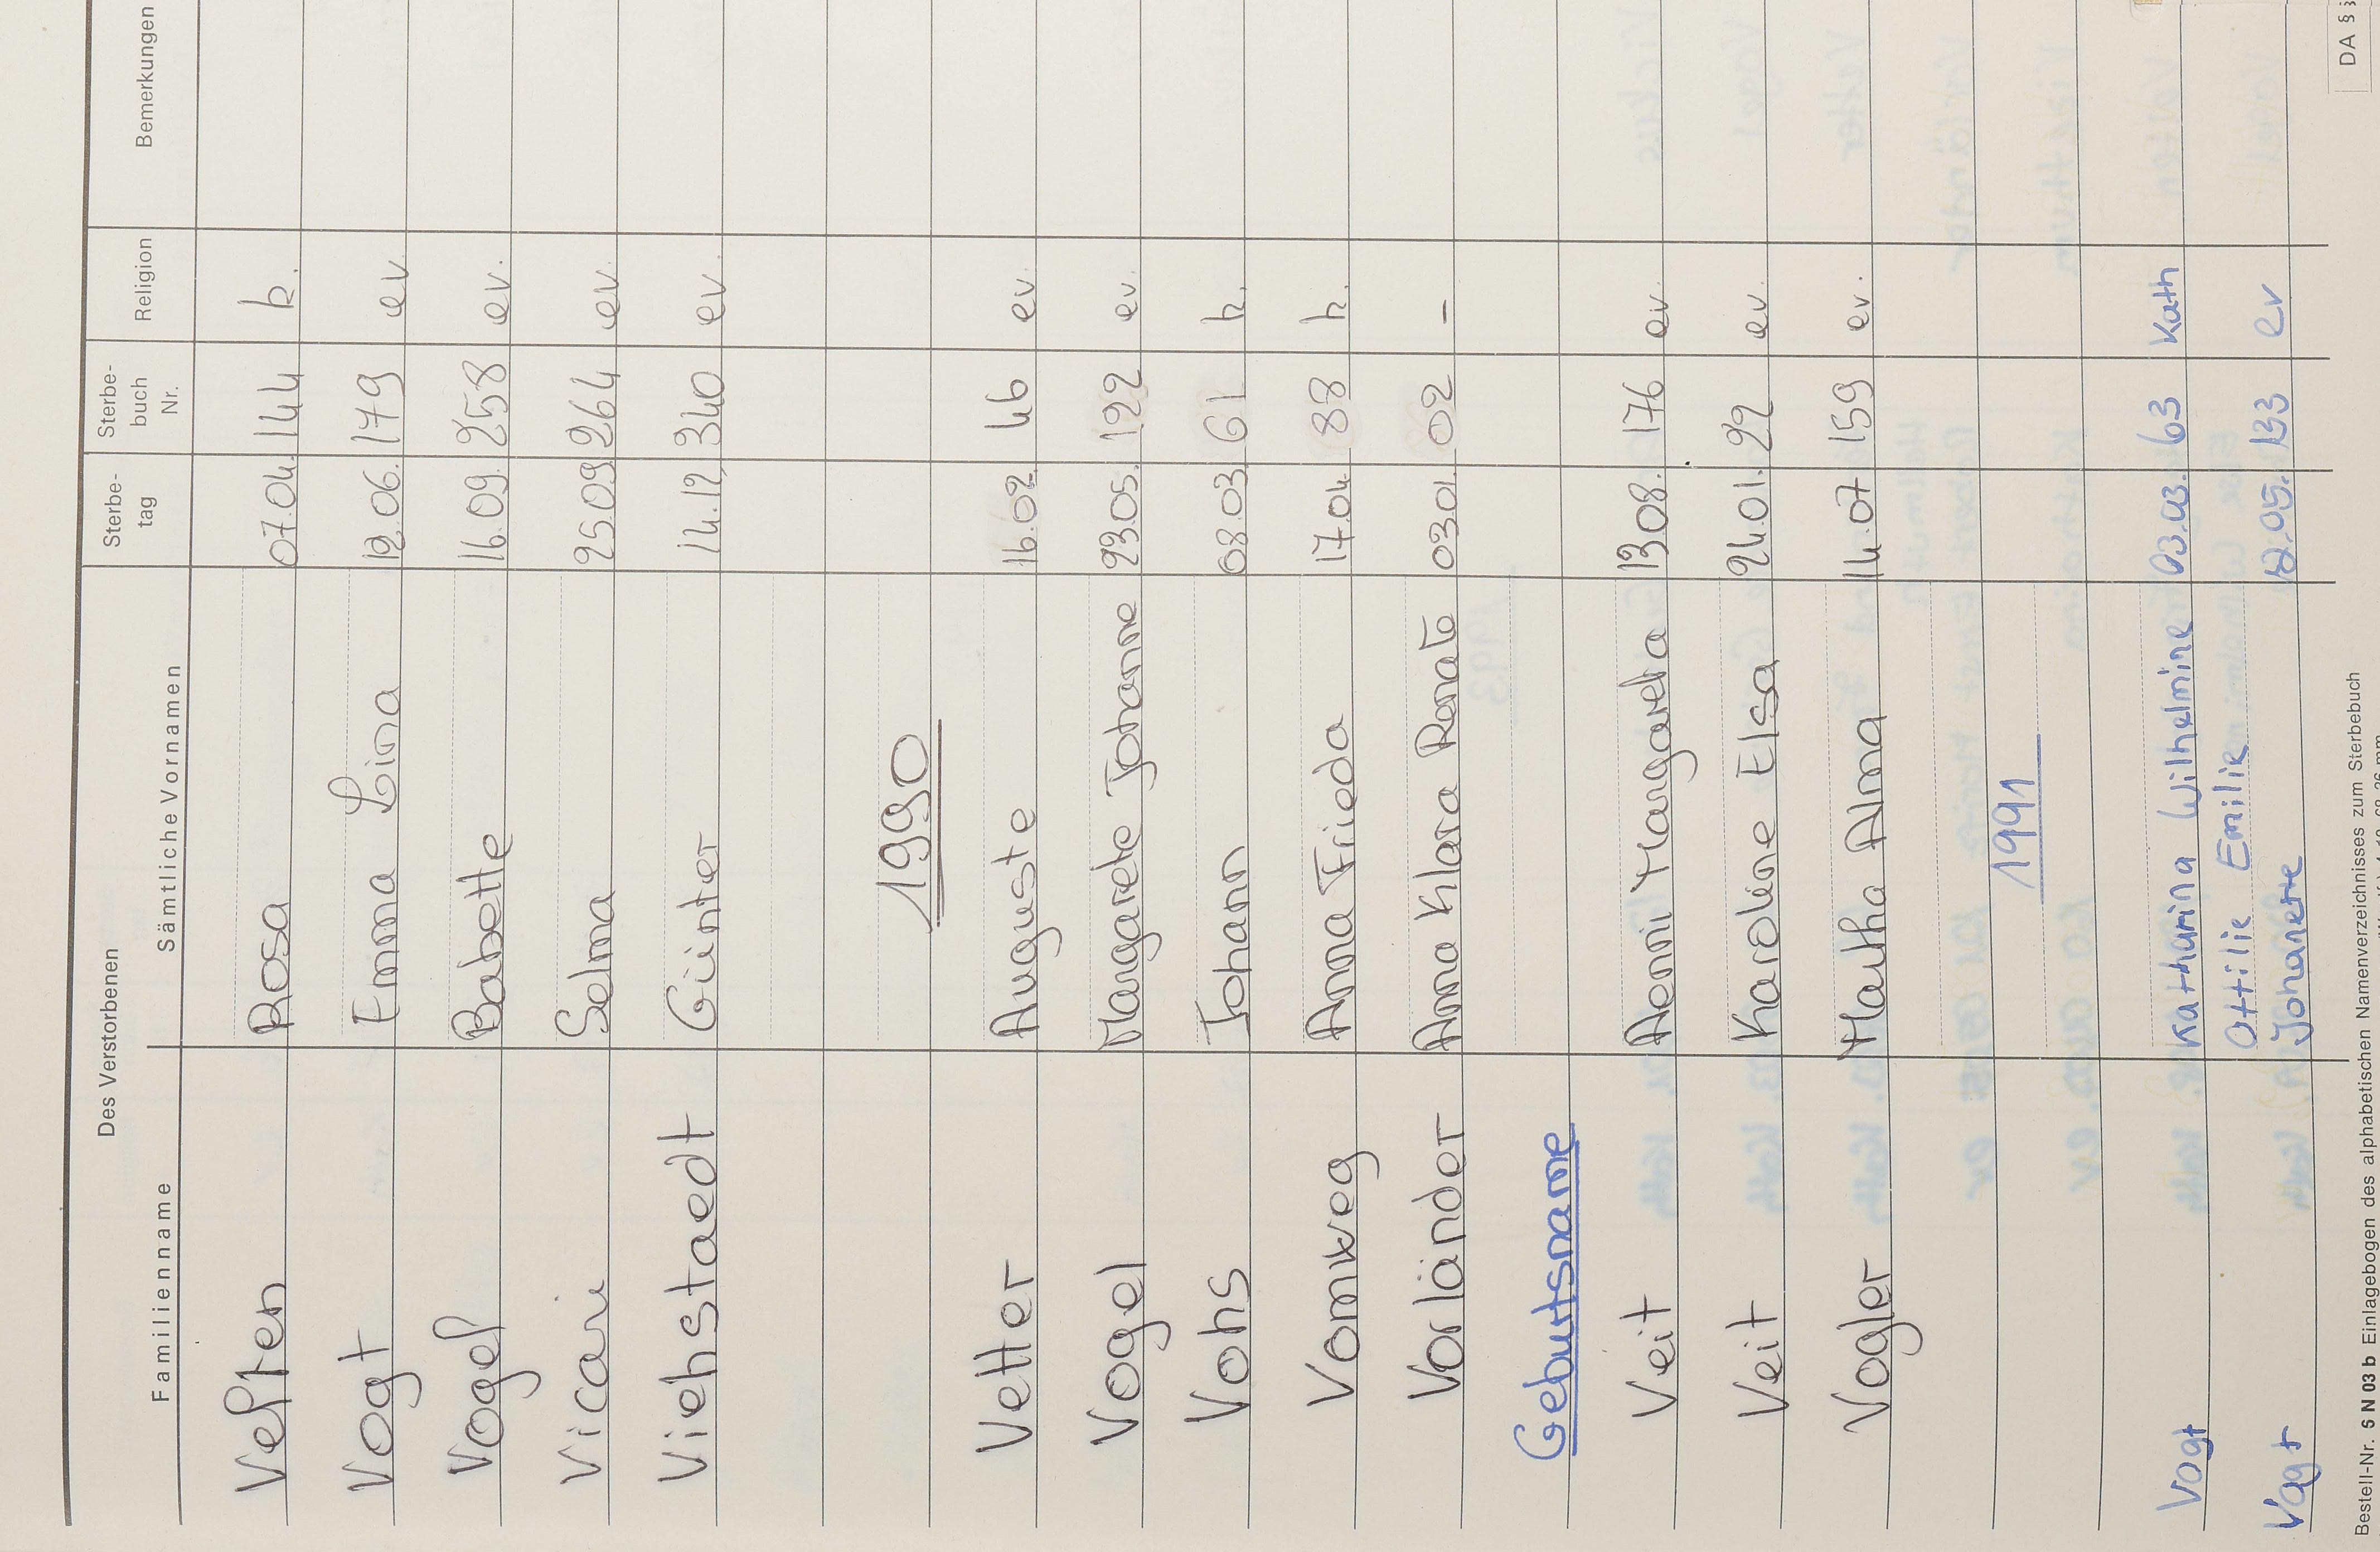 Des Verstorbenen
Familienname Sämtliche Vornamen Sterbe- tag Sterbe- buch Nr. Religion Bemerkungen
Velten Rosa 07.04. 144 k.
Vogt Emma Lina 12.06. 179 ev.
Vogel Babette 16.09. 258 ev.
Vicari Selma 25.09 264 ev.
Viehstaedt Günter 14.12. 340 ev.
1990
Vetter Auguste 16.02. 46 ev.
Vogel Margarete Johanne 23.05. 122 ev.
Vohs Johann 08.03. 61 k.
Vomweg Anna Frieda 17.04. 88 k.
Vorländer Anna Klara Renate 03.01. 02 –
Geburtsname
Veit Aenni Margareta 13.08. 176 ev.
Veit Karoline Elsa 24.01. 22 ev.
Vogler Martha Alma 14.07 159 ev.
1991
Vogt Katharina Wilhelmine 03.03. 63 Kath
Ottilie Emilie
Vogt Johanette 12.05. 133 ev
Bestell-Nr. S N 03 b Einlagebogen des alphabetischen Namenverzeichnisses zum Sterbebuch
DA §